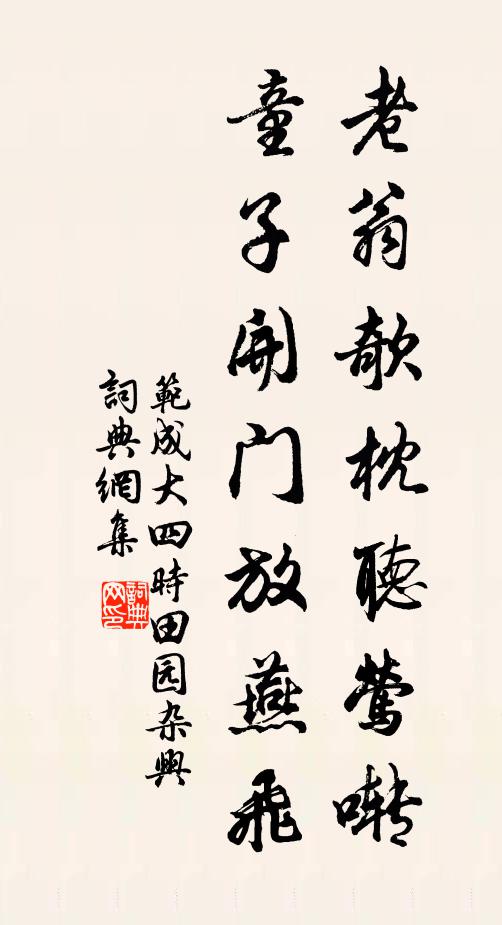 老翁欹枕聽鶯囀
童子開门放燕飛
範成大四時田园杂興
詞典網集
詞典
网印